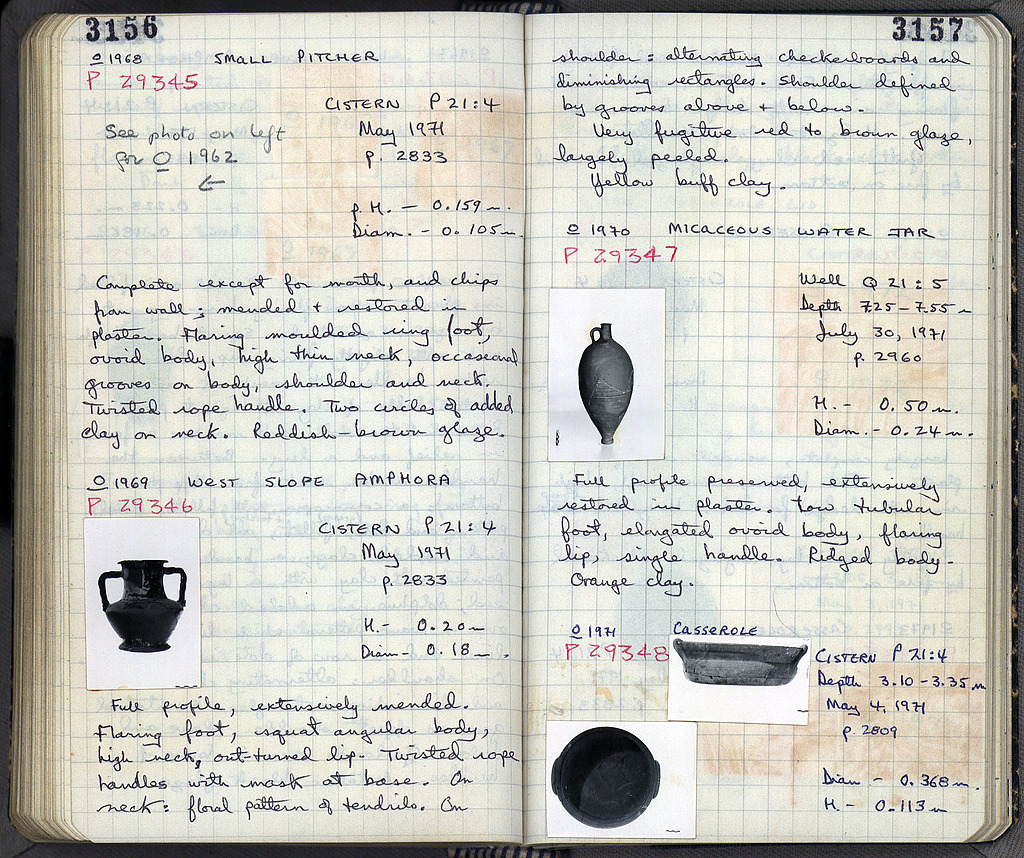 3156
O 1968 SMALL PITCHER
P 29345
CISTERN P 21:4
See photo on left
for O 1962
←
May 1971
p. 2833
p. H. – 0.159 m.
Diam. – 0.105 m.
Complete except for mouth, and chips
from wall; mended + restored in
plaster. Flaring moulded ring foot,
ovoid body, high thin neck, occasional
grooves on body, shoulder and neck.
Twisted rope handle. Two circles of added
clay on neck. Reddish-brown glaze.
O 1969 WEST SLOPE AMPHORA
P 29346
CISTERN P 21:4
May 1971
p. 2833
H. – 0.20 m
Diam – 0.18 m.
Full profile, extensively mended.
Flaring foot, squat angular body,
high neck, out-turned lip. Twisted rope
handles with mask at base. On
neck: floral pattern of tendrils. On
3157
shoulder: alternating checkerboards and
diminishing rectangles. Shoulder defined
by grooves above + below.
Very fugitive red to brown glaze,
largely peeled.
Yellow buff clay.
O 1970 MICACEOUS WATER JAR
P 29347
Well Q 21:5
Depth 7.25 – 7.55 m
July 30, 1971
p. 2960
H. – 0.50 m.
Diam. – 0.24 m.
Full profile preserved, extensively
restored in plaster. Low tubular
foot, elongated ovoid body, flaring
lip, single handle. Ridged body.
Orange clay.
O 1971 CASSEROLE
P 29348
CISTERN P 21:4
Depth 3.10 – 3.35 m
May 4, 1971
p. 2809
Diam – 0.368 m.
H. – 0.113 m